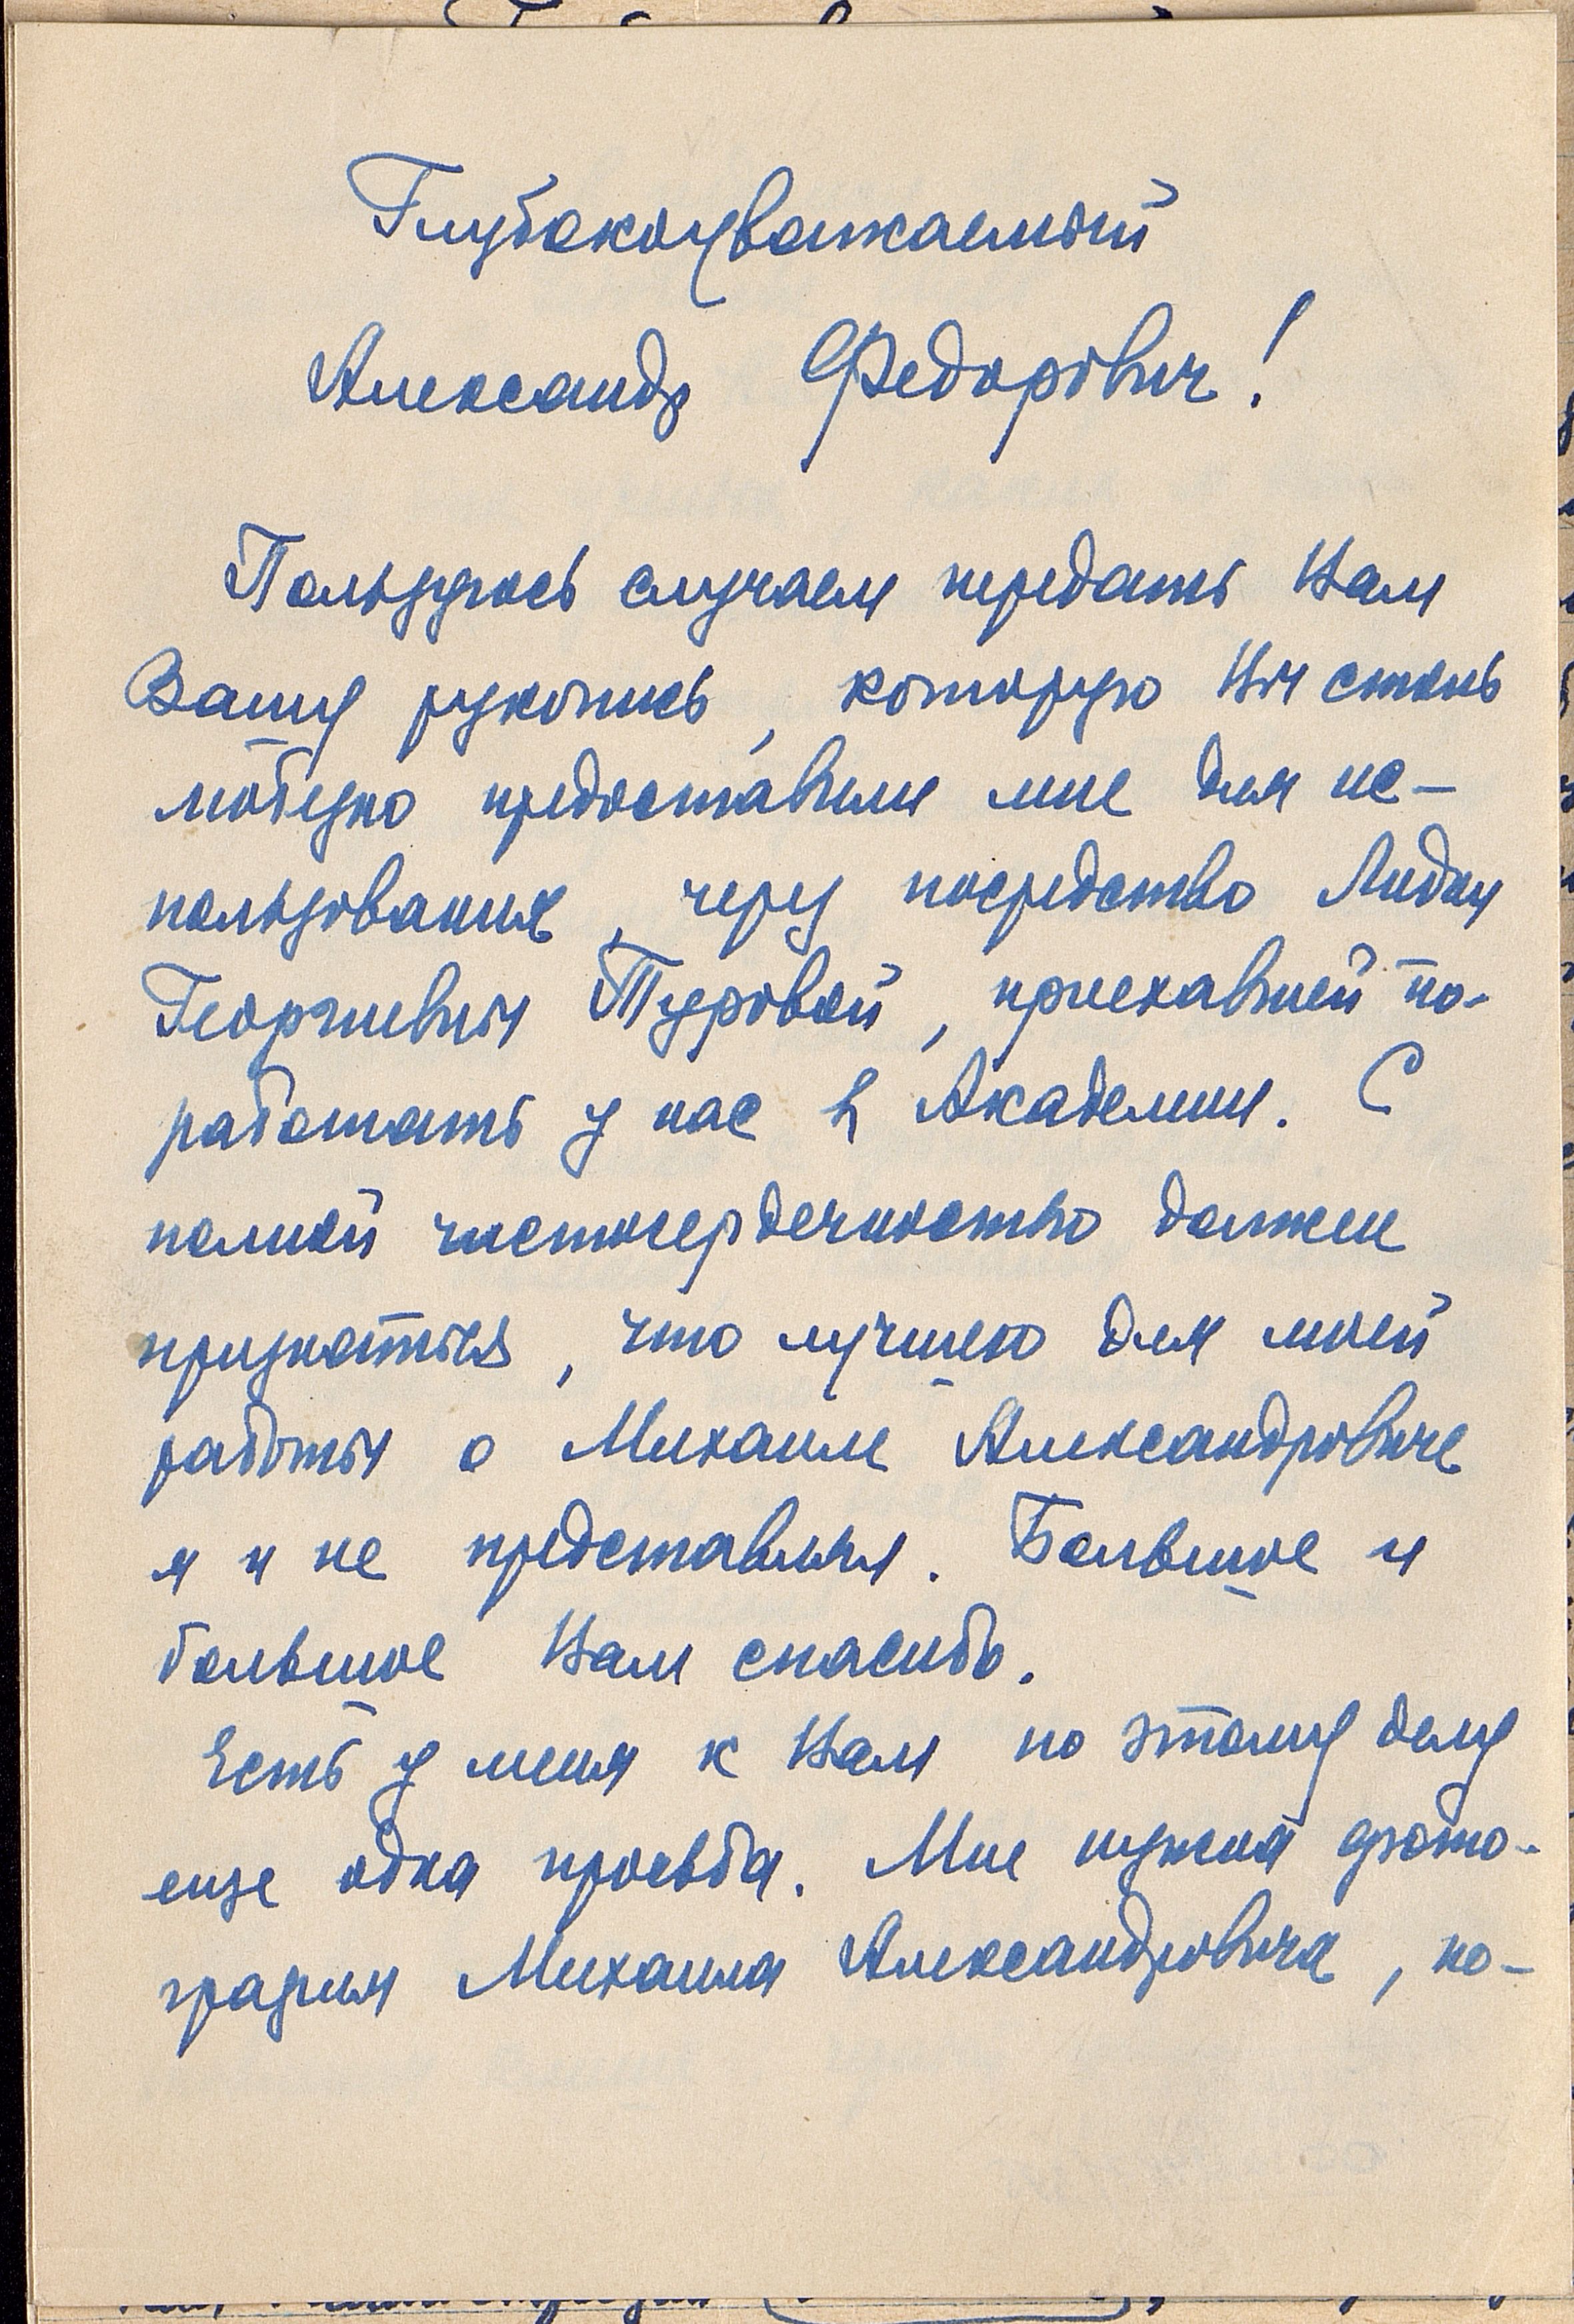 Глубокоуважаемый
Александр Федорович!
Пользуюсь случаем передать Вам
Вашу рукопись, которую Вы столь
любезно предоставили мне для ис-
пользования, через посредство Лидии
Георгиевны Туровой, приехавшей по-
работать у нас в Академии. С
полной чистосердечностью должен
признаться, что лучшего для моей
работы о Михаиле Александровиче
я и не представлял. Большое и
большое Вам спасибо.
Есть у меня к Вам по этому делу
еще одна просьба. Мне нужна фото-
графия Михаила Александровича, ко-